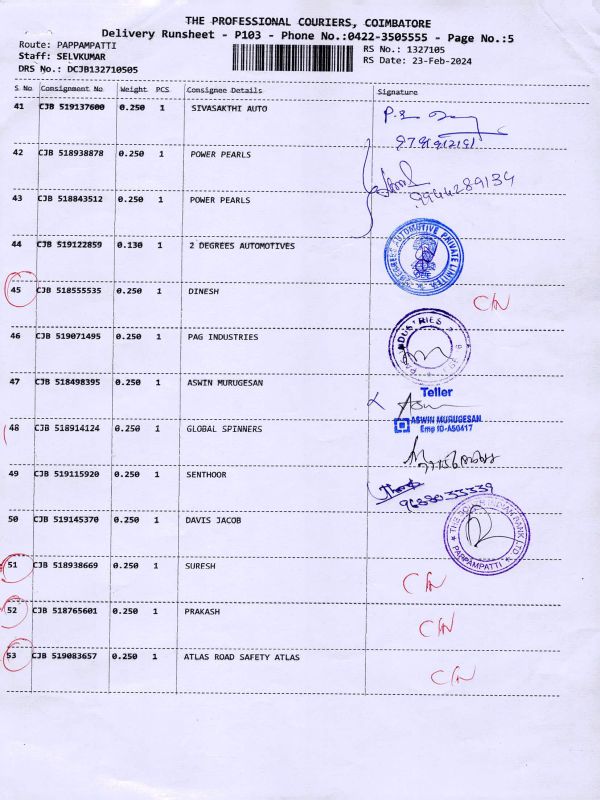 THE PROFESSIONAL COURIERS, COIMBATORE
Delivery Runsheet - P103 - Phone No.:0422-3505555 - Page No.:5
Route: PAPPAMPATTI
RS No.: 1327105
Staff: SELVKUMAR
RS Date: 23-Feb-2024
DRS No.: DCJB132710505
S No Consignment No Weight PCS Consignee Details Signature
41 CJB 519137600 0.250 1 SIVASAKTHI AUTO
42 CJB 518938878 0.250 1 POWER PEARLS
9944289134
43 CJB 518843512 0.250 1 POWER PEARLS
44 CJB 519122859 0.130 1 2 DEGREES AUTOMOTIVES
2 DEGREES AUTOMOTIVE PRIVATE LIMITED
45 CJB 518555535 0.250 1 DINESH C/N
46 CJB 519071495 0.250 1 PAG INDUSTRIES
PAG INDUSTRIES
47 CJB 518498395 0.250 1 ASWIN MURUGESAN
Teller
ASWIN MURUGESAN
Emp ID-A50417
48 CJB 518914124 0.250 1 GLOBAL SPINNERS
49 CJB 519115920 0.250 1 SENTHOOR
9688033339
50 CJB 519145370 0.250 1 DAVIS JACOB
THE SOUTH INDIAN BANK LTD. PAPPAMPATTI
51 CJB 518938669 0.250 1 SURESH C/N
52 CJB 518765601 0.250 1 PRAKASH C/N
53 CJB 519083657 0.250 1 ATLAS ROAD SAFETY ATLAS C/N